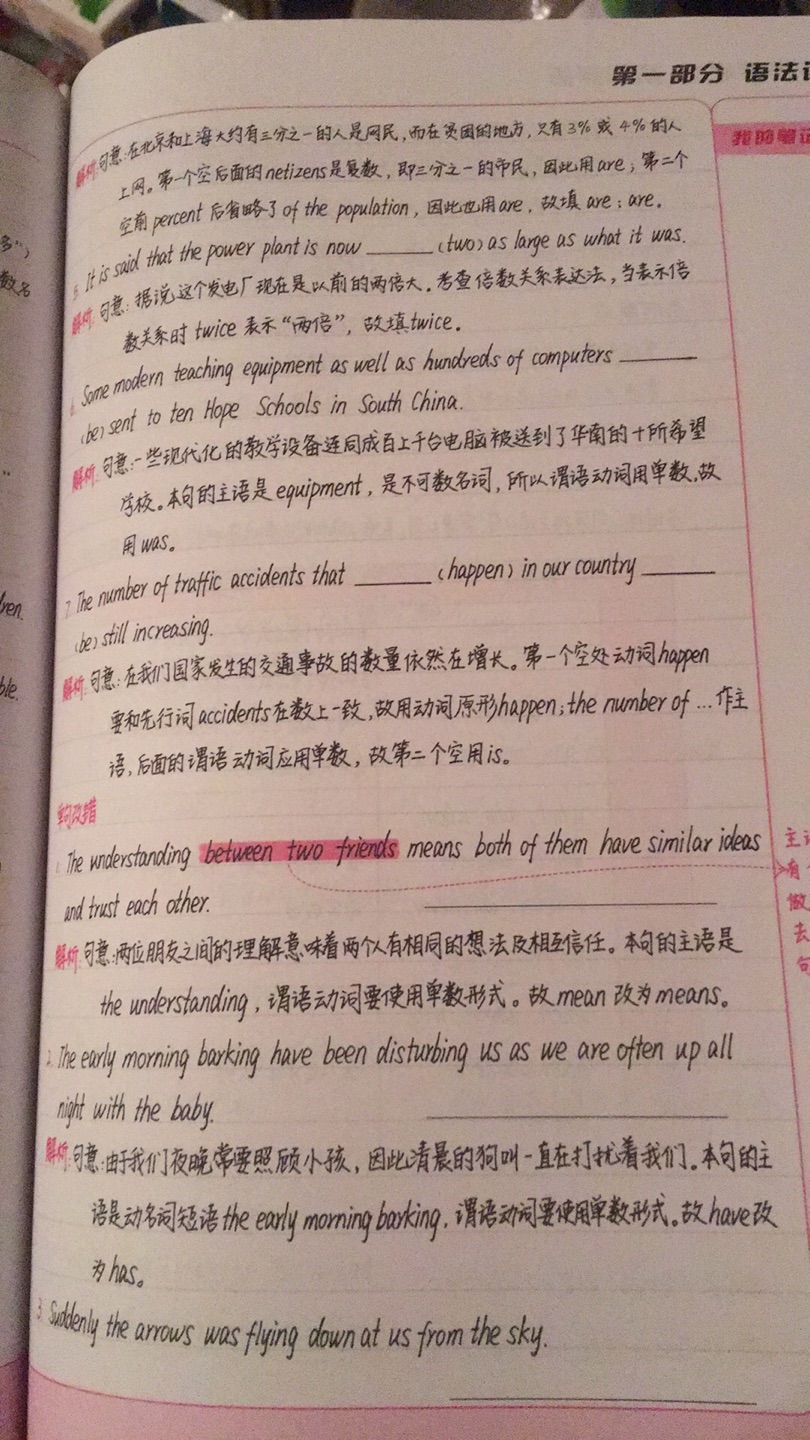 第一部分 语法
我的笔记
解析:句意:在北京和上海大约有三分之一的人是网民,而在贫困的地方,只有3%或4%的人
上网。第一个空后面的netizens是复数,即三分之一的市民,因此用are;第二个
空前percent后省略了of the population,因此也用are,故填are;are。
5. It is said that the power plant is now ______ (two) as large as what it was.
解析:句意:据说这个发电厂现在是以前的两倍大。考查倍数关系表达法,当表示倍
数关系时twice表示“两倍”,故填twice。
6. Some modern teaching equipment as well as hundreds of computers ______
(be) sent to ten Hope Schools in South China.
解析:句意:一些现代化的教学设备连同成百上千台电脑被送到了华南的十所希望
学校。本句的主语是equipment,是不可数名词,所以谓语动词用单数,故
用was。
7. The number of traffic accidents that ______ (happen) in our country ______
(be) still increasing.
解析:句意:在我们国家发生的交通事故的数量依然在增长。第一个空处动词happen
要和先行词accidents在数上一致,故用动词原形happen;the number of …作主
语,后面的谓语动词应用单数,故第二个空用is。
单句改错
1. The understanding between two friends means both of them have similar ideas
and trust each other. ______
解析:句意:两位朋友之间的理解意味着两个人有相同的想法及相互信任。本句的主语是
the understanding,谓语动词要使用单数形式。故mean改为means。
2. The early morning barking have been disturbing us as we are often up all
night with the baby. ______
解析:句意:由于我们夜晚常要照顾小孩,因此清晨的狗叫一直在打扰着我们。本句的主
语是动名词短语the early morning barking,谓语动词要使用单数形式。故have改
为has。
3. Suddenly the arrows was flying down at us from the sky.
______